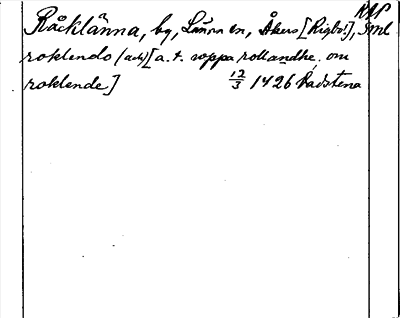 RAP
Råcklänna, by, Länna sn, Åkers [Rigbo!], Sml
roklendo (ack) [a. t. uppa rollandhe. om
roklende] 12/3 1426 Vadstena